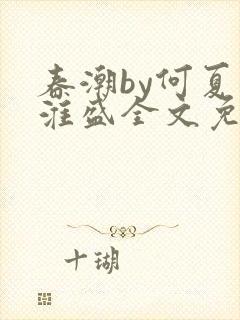 春潮by何夏
淮盛全文免
十瑚